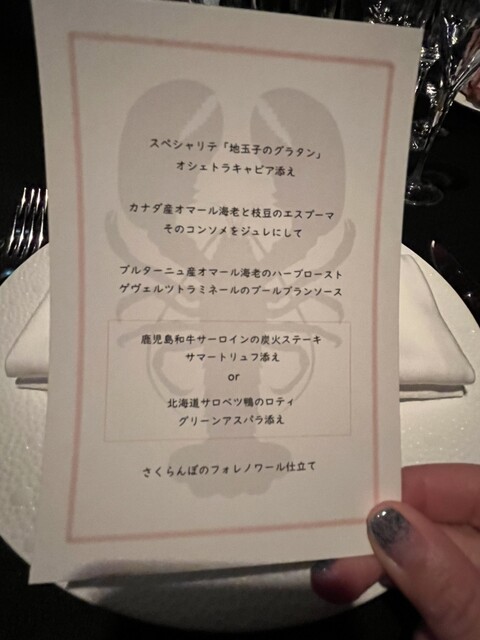 スペシャリテ「地玉子のグラタン」
オシェトラキャビア添え
カナダ産オマール海老と枝豆のエスプーマ
そのコンソメをジュレにして
ブルターニュ産オマール海老のハーブロースト
ゲヴェルツトラミネールのブールブランソース
鹿児島和牛サーロインの炭火ステーキ
サマートリュフ添え
or
北海道サロベツ鴨のロティ
グリーンアスパラ添え
さくらんぼのフォレノワール仕立て